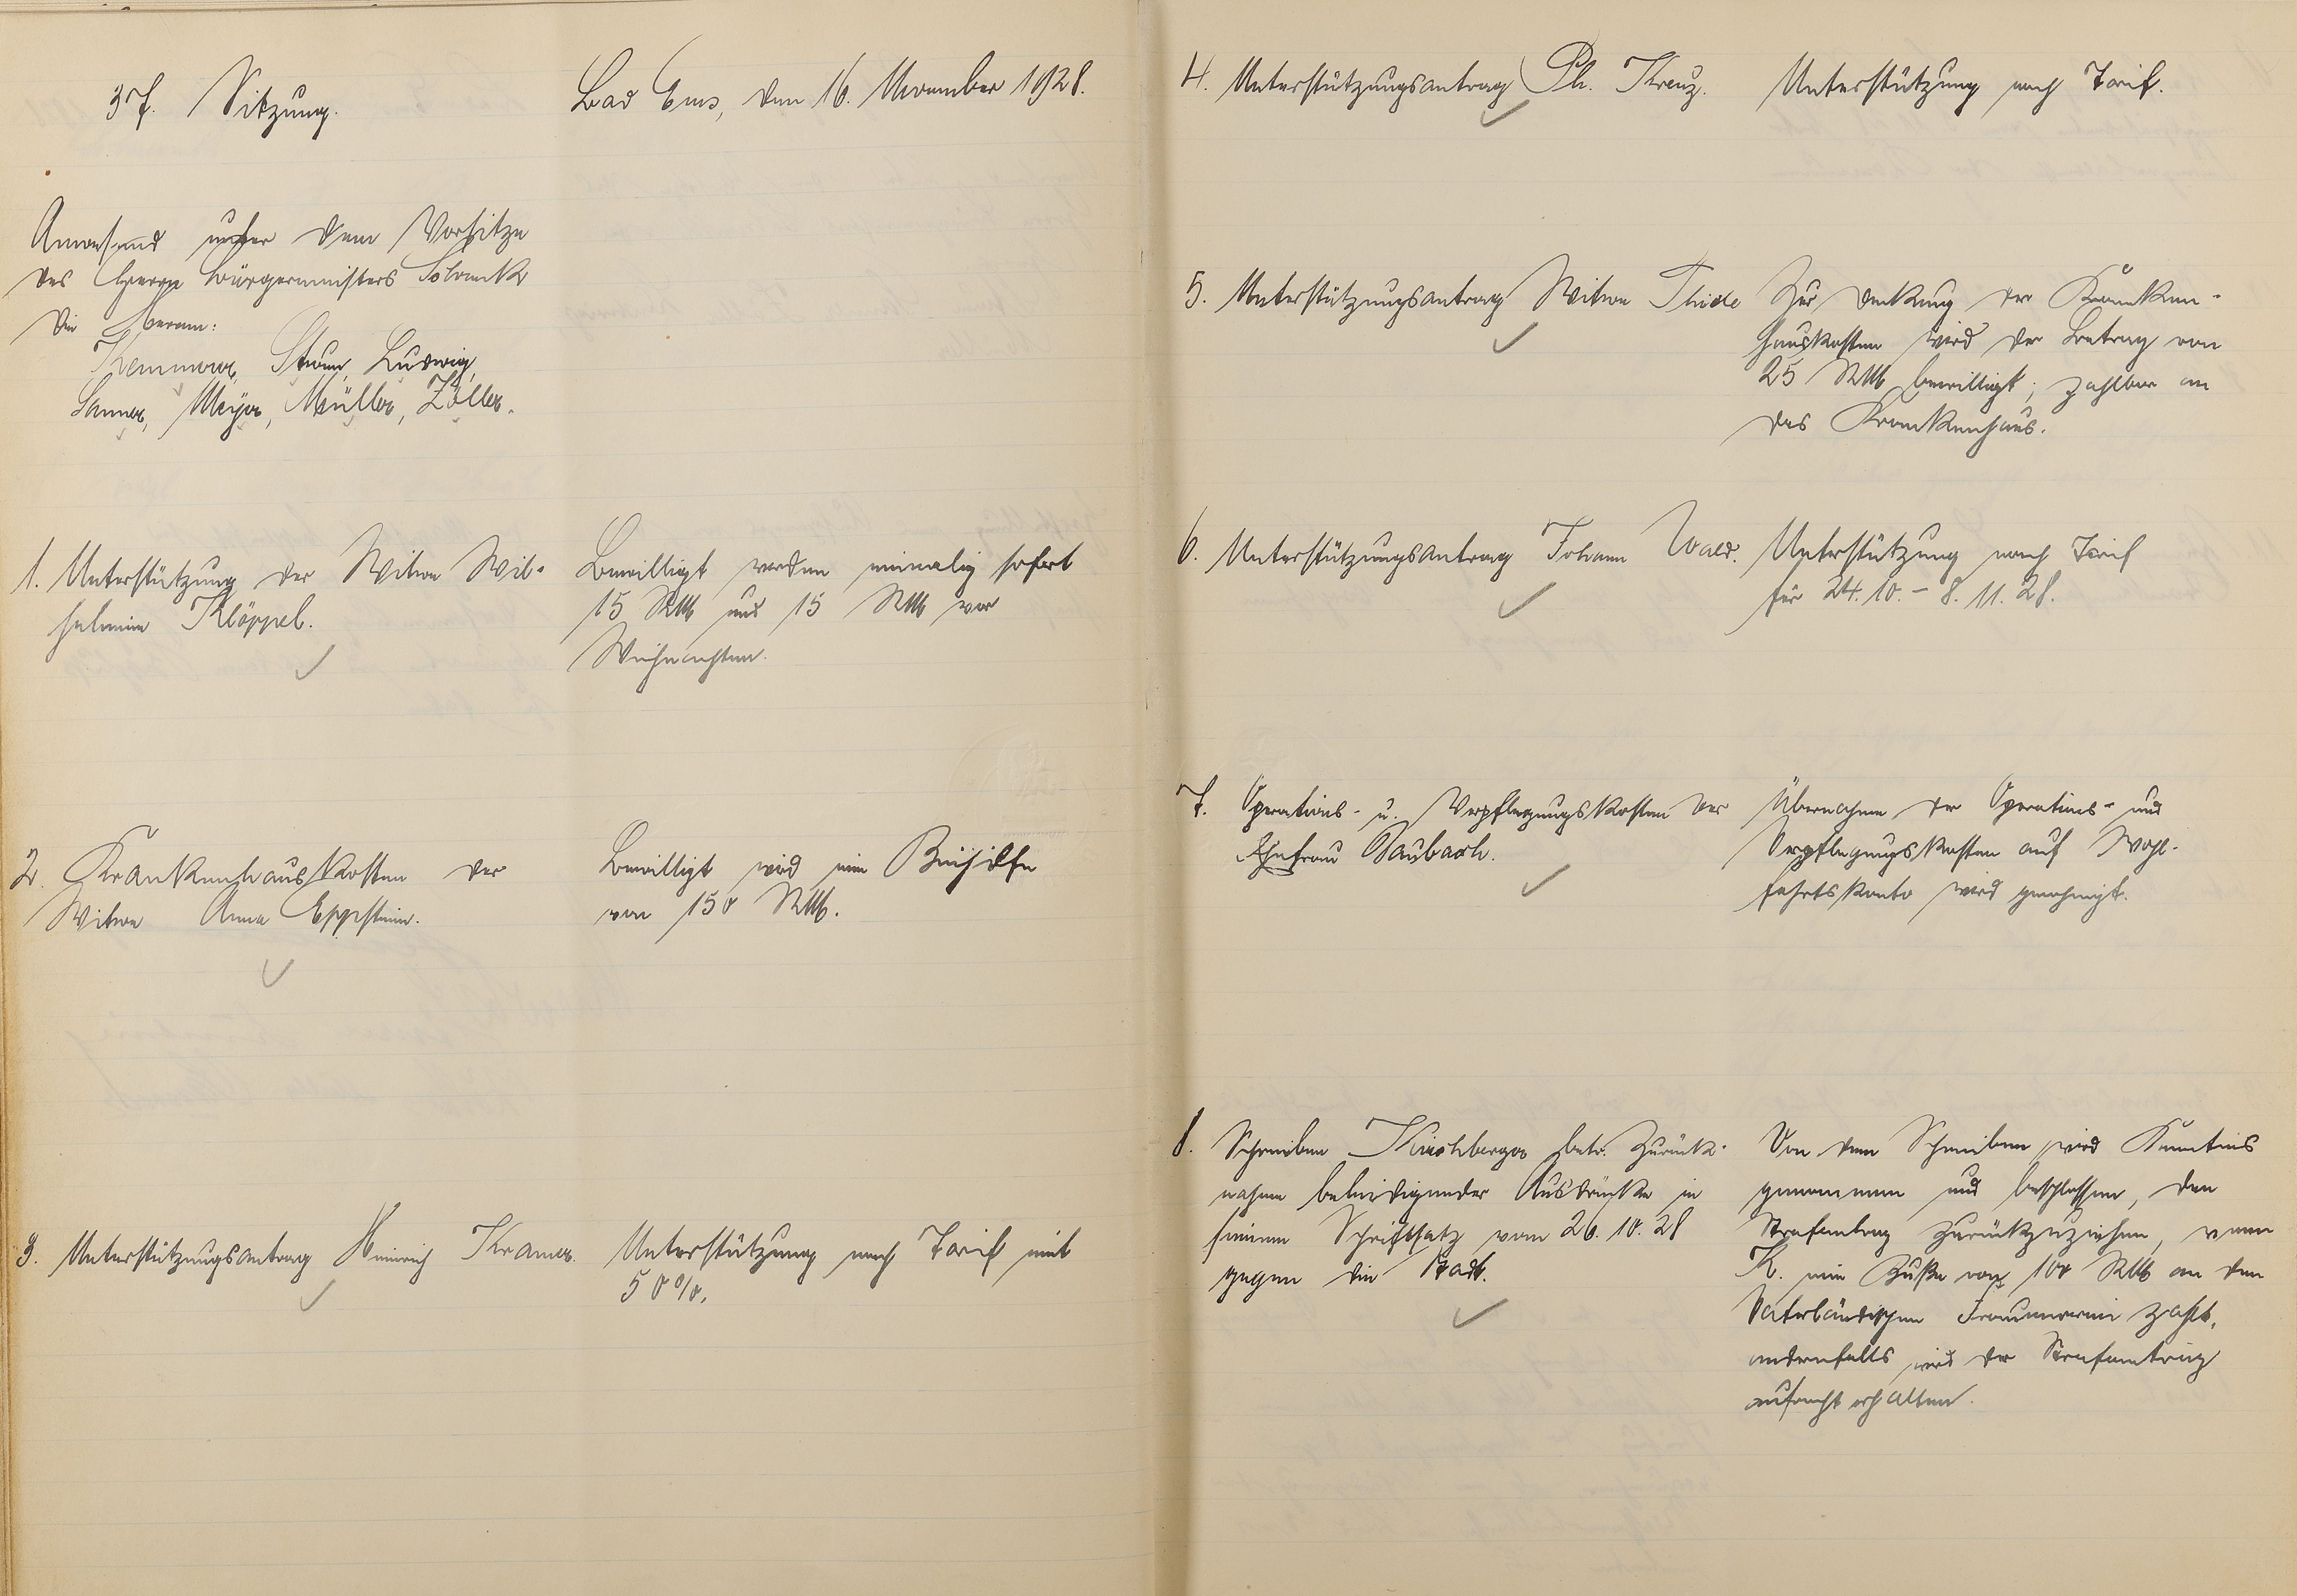 37. Sitzung.
Bad Ems, den 16. November 1928.
Anwesend unter dem Vorsitze
des Herrn Bürgermeisters Schrank
die Herren:
Kemmerer, Sturm, Ludwig,
Sauer, Meyer, Müller, Zöller.
1. Unterstützung der Witwe Wil-
helmine Klöppel.
Bewilligt werden einmalig sofort
15 RM und 15 RM vor
Weihnachten.
2. Krankenhauskosten der
Witwe Anna Eppstein.
Bewilligt wird eine Beihilfe
von 150 RM.
3. Unterstützungsantrag Heinrich Kramer.
Unterstützung nach Tarif mit
50%.
4. Unterstützungsantrag Ph. Kreuz.
Unterstützung nach Tarif.
5. Unterstützungsantrag Witwe Thiele
Zur Deckung der Kranken-
hauskosten wird der Betrag von
25 RM bewilligt; zahlbar an
das Krankenhaus.
6. Unterstützungsantrag Johann Wald.
Unterstützung nach Tarif
für 24.10. - 8.11.28.
7. Operations- u. Verpflegungskosten der
Ehefrau Baubach.
Übernahme der Operations- und
Verpflegungskosten auf Wohl-
fahrtskonto wird genehmigt.
8. Schreiben Kirchberger betr. Zurück-
nahme beleidigender Ausdrücke in
seinem Schriftsatz vom 26.10.28
gegen die Stadt.
Von dem Schreiben wird Kenntnis
genommen und beschlossen, den
Strafantrag zurückzuziehen, wenn
K. eine Buße von 100 RM an den
Vaterländischen Frauenverein zahlt,
andernfalls wird der Strafantrag
aufrecht erhalten.